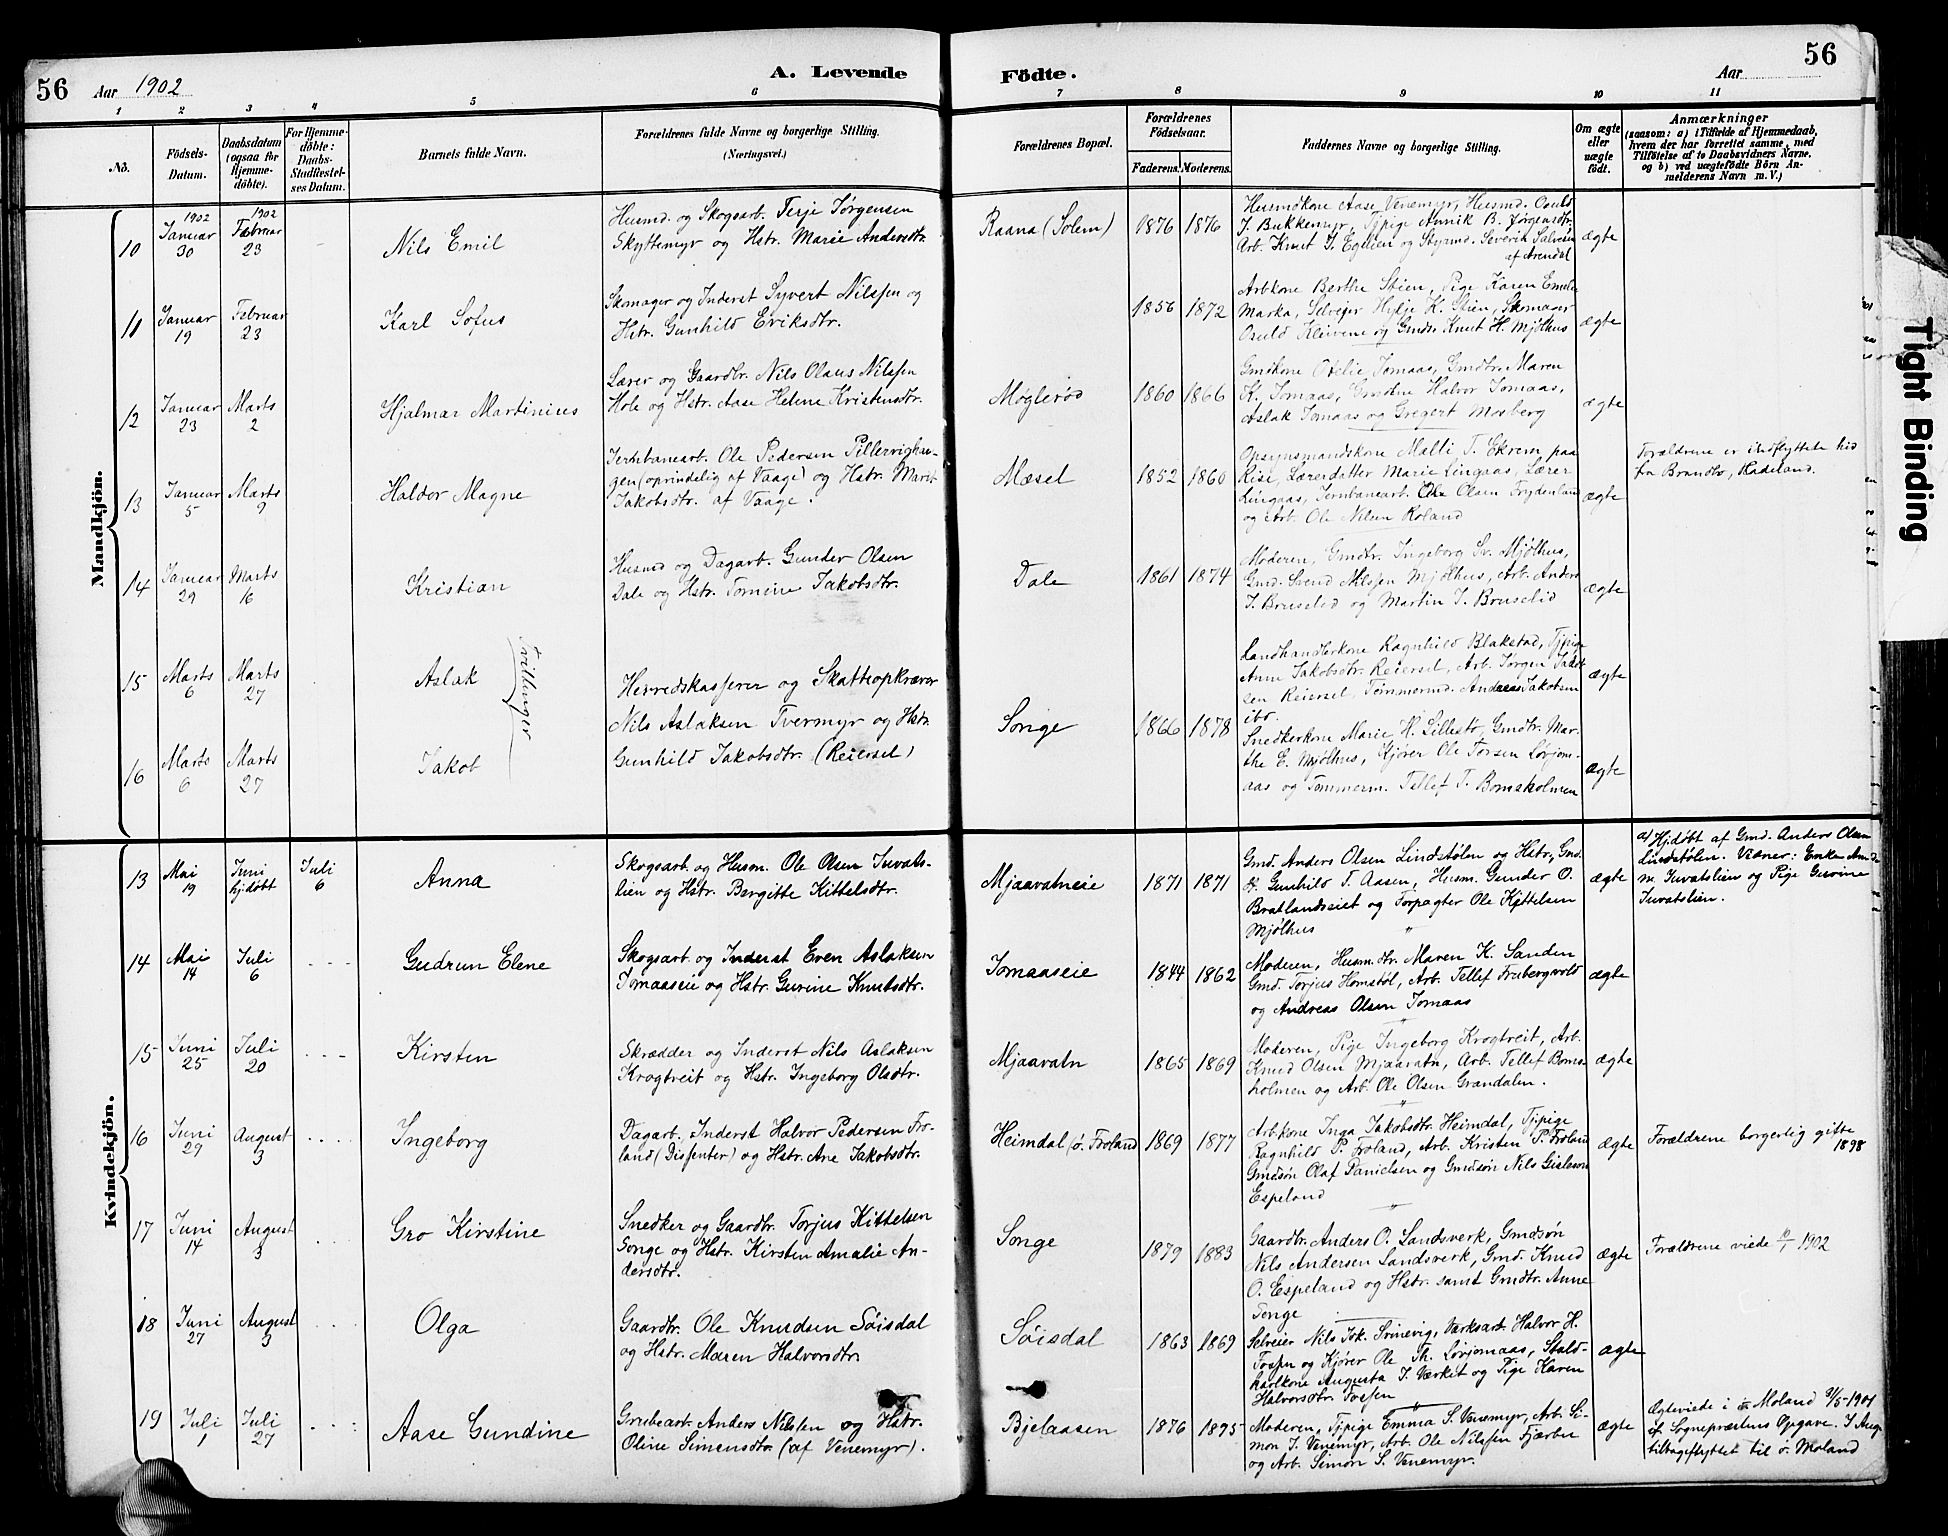 56
Aar 1902
A. Levende
Födte.
Aar
56
1 2 3 4 5 6 7 8 9 10 11
No.
Födsels-
Datum.
Daabsdatum
(ogsaa for
Hjemme-
döbte).
For Hjemme-
döbte:
Daabs-
Stadfæstel-
ses Datum.
Barnets fulde Navn.
Forældrenes fulde Navne og borgerlige Stilling.
(Næringsvei.)
Forældrenes Bopæl.
Forældrenes
Födselsaar.
Faderens. Moderens.
Faddernes Navne og borgerlige Stilling.
Om ægte
eller
uægte
födt.
Anmærkninger
(saasom: a) i Tilfælde af Hjemmedaab,
hvem der har forrettet samme, med
Tilföielse af to Daabsvidners Navne,
og b) ved uægtefödte Börn An-
melderens Navn m. V.)
Mandkjön.
10
1902
Januar
30
1902
Februar
23
Nils Emil
Husmd. og Skogsarb. Terje Jørgensen
Skyttemyr og Hstr. Marie Andersdtr.
Raana (Solem)
1876 1876
Husmdkone Aase Venemyr, Husmd. Osuld
J. Bukkemyr, Tjpige Annik B. Jørgensdtr.
Arb. Knut J. Egelien og Styrmd. Severin Salvesen
af Arendal
ægte
11
Januar
19
Februar
23
Karl Sofus
Skomager og Inderst Syvert Nilssen og
Hstr. Gunhild Eriksdtr.
1856 1872
Arbkone Berthe Stien, Pige Karen Emelie
Marka, Selveier Hylje K. Stien, Skomager
Osuld Kleivene og Gmdr. Knut H. Mjølhus
ægte
12
Januar
23
Marts
2
Hjalmar Martinius
Lærer og Gaardbr. Nils Olaus Nilssen
Hole og Hstr. Aase Helene Kristensdtr.
Møglerød
1860 1866
Gmdkone Otelie Tomaas, Gmdtr. Maren
K. Tomaas, Gmdsøn Halvor Tomaas,
Aslak Tomaas og Gregert Mosberg
ægte
13
Januar
5
Marts
9
Haldor Magne
Jernbanearb. Ole Pedersen Pillervighau-
gen (oprindelig af Vaage) og Hstr. Marit
Jakobsdtr. af Vaage.
Mæsel
1852 1860
Opsynsmandskone Malli T. Ekrem, paa
Rise, Lærerdatter Marie Lingaas, Lærer
Lingaas, Jernbanearb. Ole Olsen Frydenlund
og Arb. Ole Nilsen Roland
ægte
Forældrene er indflyttede hid
fra Brandbo, Hadeland.
14
Januar
29
Marts
16
Kristian
Husmd og Dagarb. Gunder Olsen
Dale og Hstr. Tomine Jakobsdtr.
Dale
1861 1874
Moderen, Gmdtr. Ingeborg Sv. Mjølhus,
Gmd. Svend Nilssen Mjølhus, Arb. Anders
J. Bruselid og Martin J. Bruselid
ægte
15
Marts
6
Marts
27
Aslak
Tvillinger
Herredskasserer og Skatteopkræver
Nils Aslaksen Tvermyr og Hstr.
Gunhild Jakobsdtr. (Reiersel)
Songe
1866 1878
Landhandlerkone Ragnhild Blakstad, Tjpige
Anne Jakobsdtr. Reiersel, Arb. Jørgen Jakob-
sen Reiersel, Tømmermd. Andreas Jakobsen
ibd.
ægte
16
Marts
6
Marts
27
Jakob
Snedkerkone Marie H. Lillestø, Gmdtr. Mar-
the E. Mjølhus, Kjører Ole Torsen Lørjom-
aas og Tømmerm. Tellef T. Bomsholmen
ægte
Kvindekjön.
13
Mai
19
Juni
hjdøbt
Juli
6
Anna
Skogsarb. og Husm. Ole Olsen Juvats-
lien og Hstr. Bergitte Kittelsdtr.
Mjaavatneie
1871 1871
Gmd. Anders Olsen Lindstølen og Hstr., Gmd.
K. Gunhild T. Aasen, Husm. Gunder O.
Bratlandseiet og Forpagter Ole Kittelsen
Mjølhus
ægte
a) Hjdøbt af Gmd. Anders Olsen
Lindstølen. Vidner: Enke Anne
M. Juvatslien og Pige Gurine
Juvatslien.
14
Mai
14
Juli
6
Gudrun Elene
Skogsarb. og Inderst Even Aslaksen
Tomaaseie og Hstr. Gurine Knutsdtr.
Tomaaseie
1844 1862
Moderen, Husm.dtr. Maren K. Sanden
Gmd. Torjus Homstøl, Arb. Tellef Frebergvold
og Andreas Olsen Tomaas
ægte
15
Juni
25
Juli
20
Kirsten
Skrædder og Inderst Nils Aslaksen
Krogtveit og Hstr. Ingeborg Olsdtr.
Mjaavatn
1865 1869
Moderen, Pige Ingeborg Krogtveit, Arb.
Knud Olsen Mjaavatn, Arb. Tellef Boms-
holmen og Arb. Ole Olsen Grandalen.
ægte
16
Juni
29
August
3
Ingeborg
Dagarb. Inderst Halvor Pedersen Fro-
land (Dissenter) og Hstr. Ane Jakobsdtr.
Heimdal (ø. Froland
1869 1877
Arbkone Inga Jakobsdtr. Heimdal, Tjpige
Ragnhild P. Froland, Arb. Kristen P. Froland
Gmdsøn Olaf Danielsen og Gmdsøn Nils Gisleson
Espeland
ægte
Forældrene borgerlig gifte
1898
17
Juni
14
August
3
Gro Kirstine
Snedker og Gaardbr. Torjus Kittelsen
Songe og Hstr. Kirsten Amalie An-
dersdtr.
Songe
1879 1883
Gaardbr. Anders O. Landsverk, Gmdsøn
Nils Andersen Landsverk, Gmd. Knud
O. Espeland og Hstr. samt Gmdtr. Anne
Songe
ægte
Forældrene viede 10/1 1902
18
Juni
27
August
3
Olga
Gaardbr. Ole Knudsen Søisdal
og Hstr. Maren Halvorsdtr.
Søisdal
1863 1869
Selveier Nils Jok. Svinevig, Værksarb. Halvor H.
Fossen og Kjører Ole Th. Lørjomaas, Stald-
karlkone Augusta J. Værket og Pige Karen
Halvorsdtr. Fossen
ægte
19
Juli
1
Juli
27
Aase Gundine
Grubearb. Anders Nilssen og Hstr.
Oline Simensdtr (af Venemyr).
Bjelaasen
1876 1895
Moderen, Tjpige Emma S. Venemyr, Arb. Si-
mon J. Venemyr, Arb. Ole Nilssen Fjærbu
og Arb. Simon S. Venemyr.
ægte
Ægteviede i ø. Moland 31/5-1901
ef. Sogneprestens Opgave. I Aug.
tilbageflyttet til ø. Moland
Tight Binding